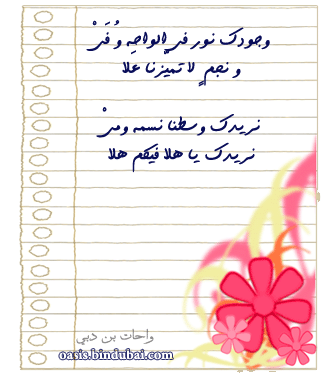 وجودك نور في الواحه وُفَيْ
و نجمٍ لا تميّزنا علا
نريدك وسطنا نسمه وميْ
نريدك يا هلا فيكم هلا
واحات بن دبي
oasis.bindubai.com